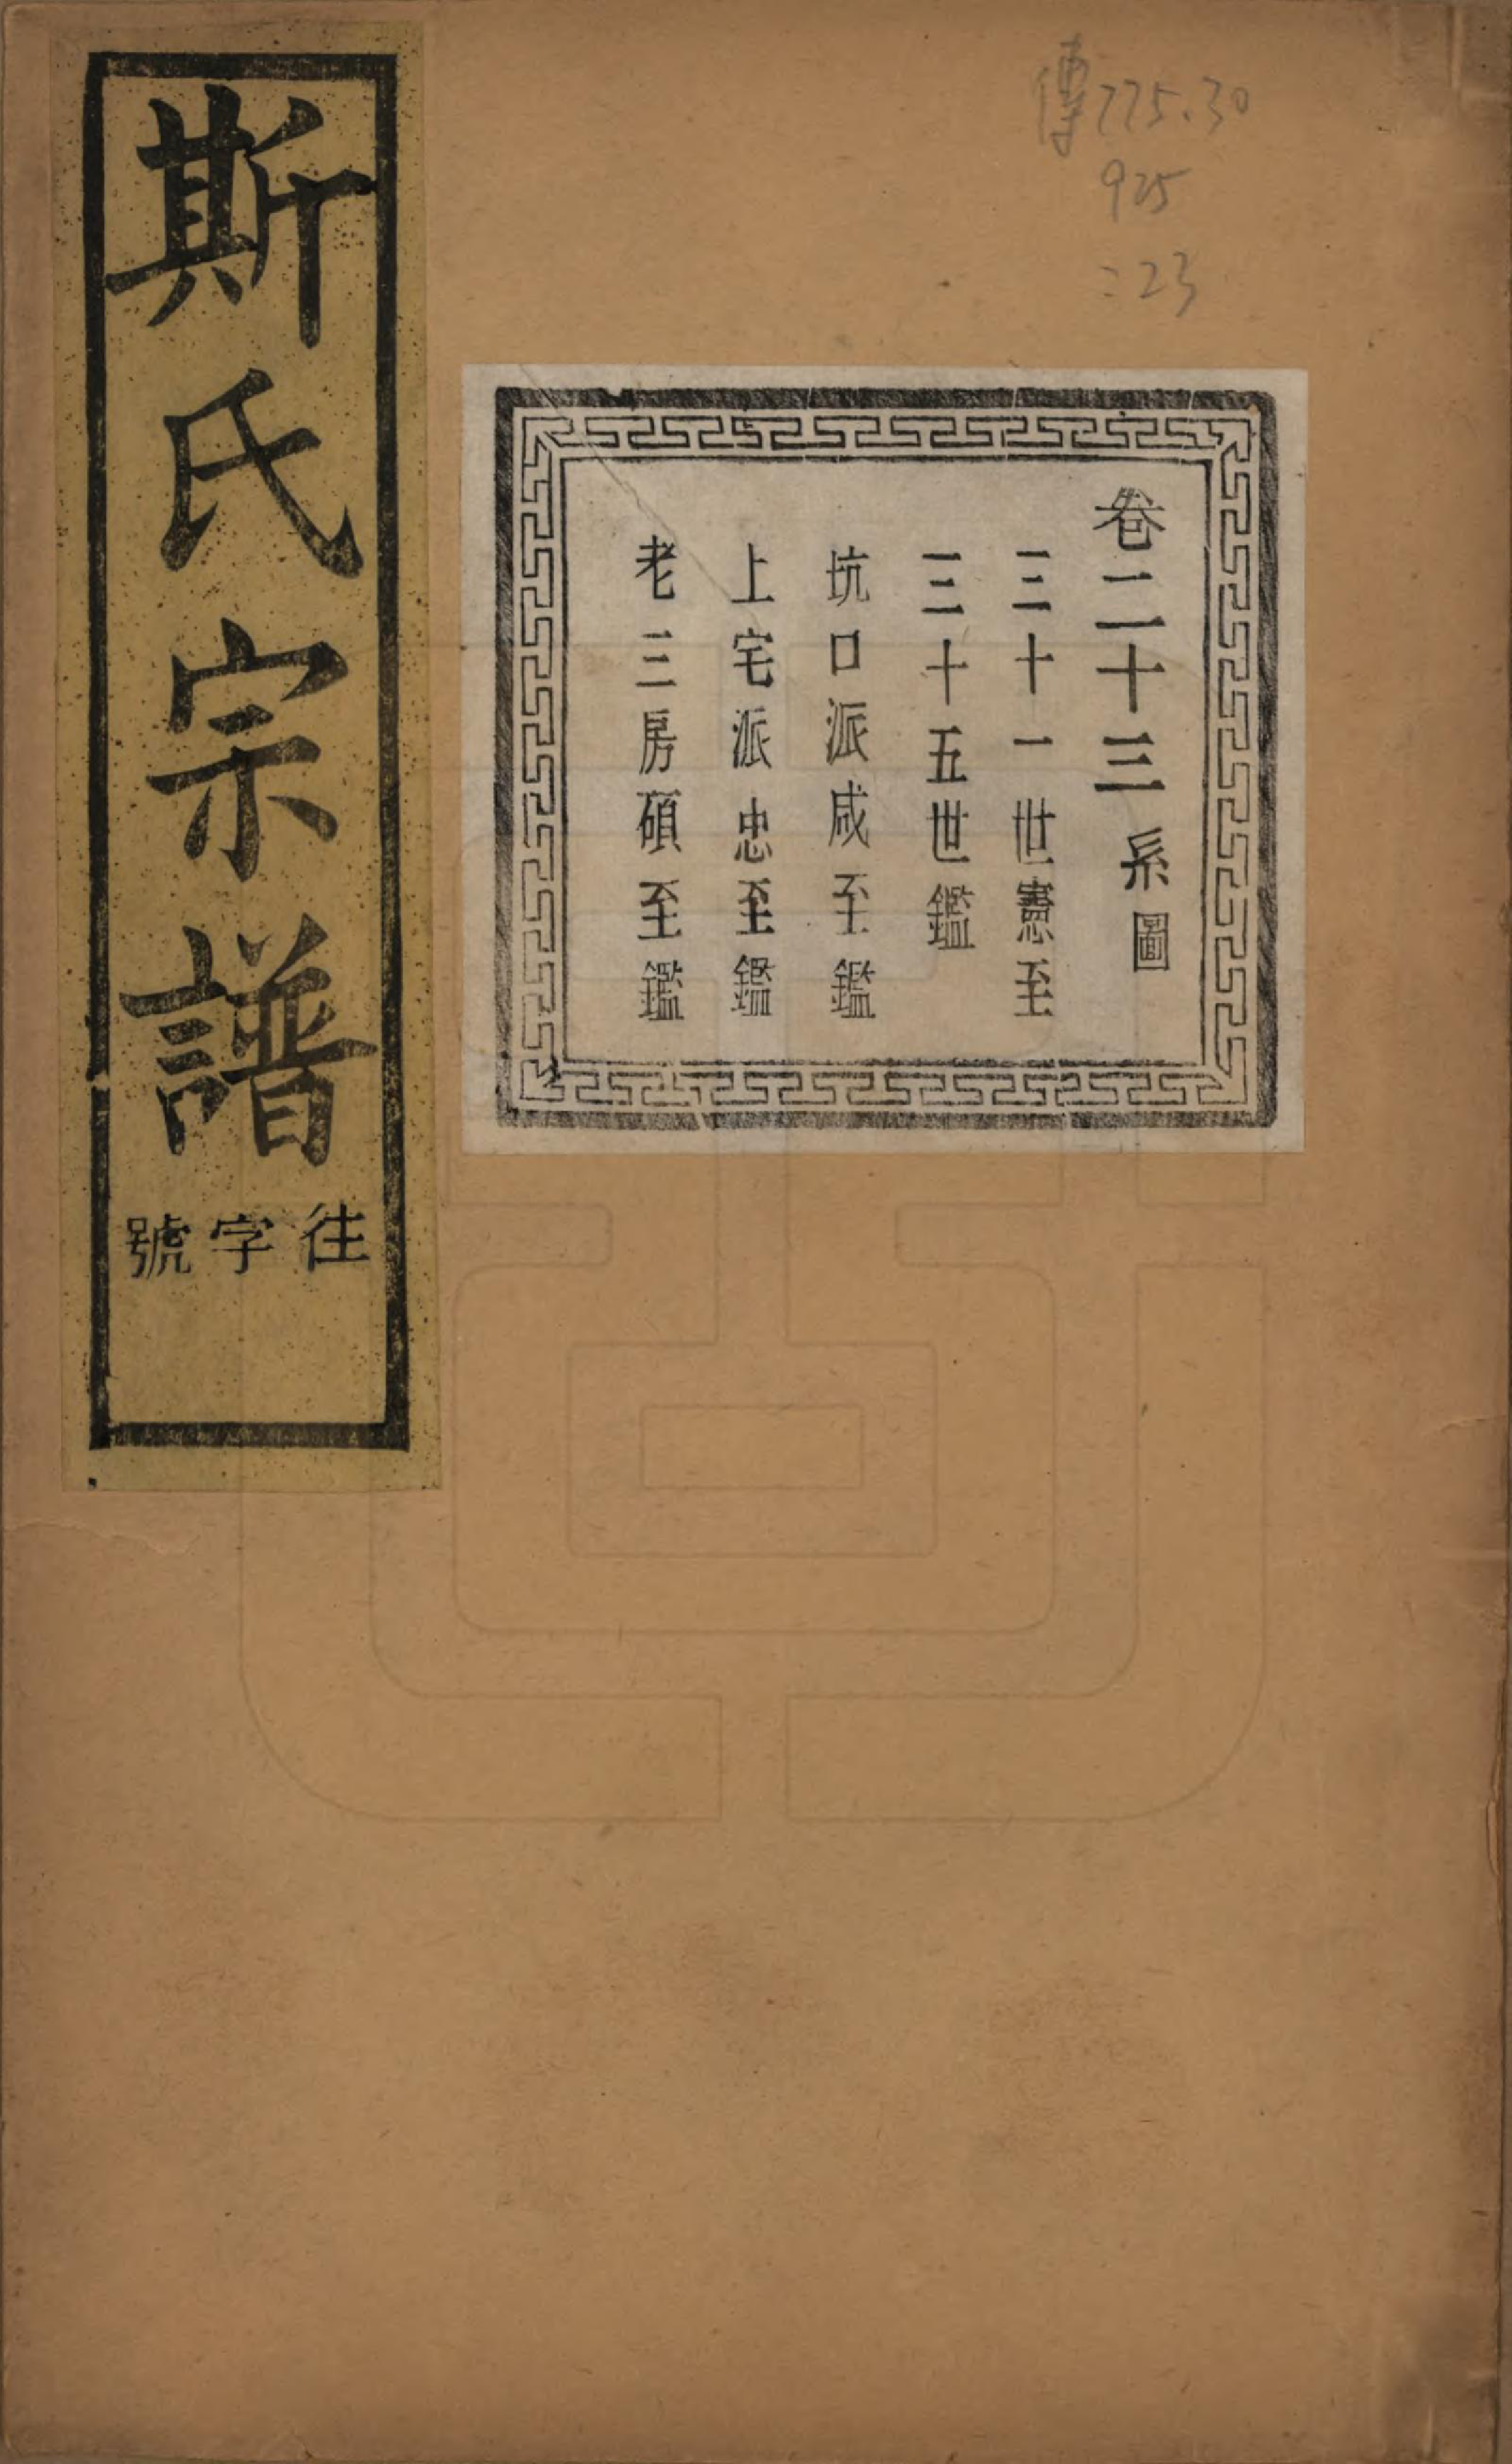 傳775.30
925
:23
卷二十三系圖
三十一世憲至
三十五世鑑
坑口派咸至鑑
上宅派忠至鑑
老三房碩至鑑
斯氏宗譜
往字號